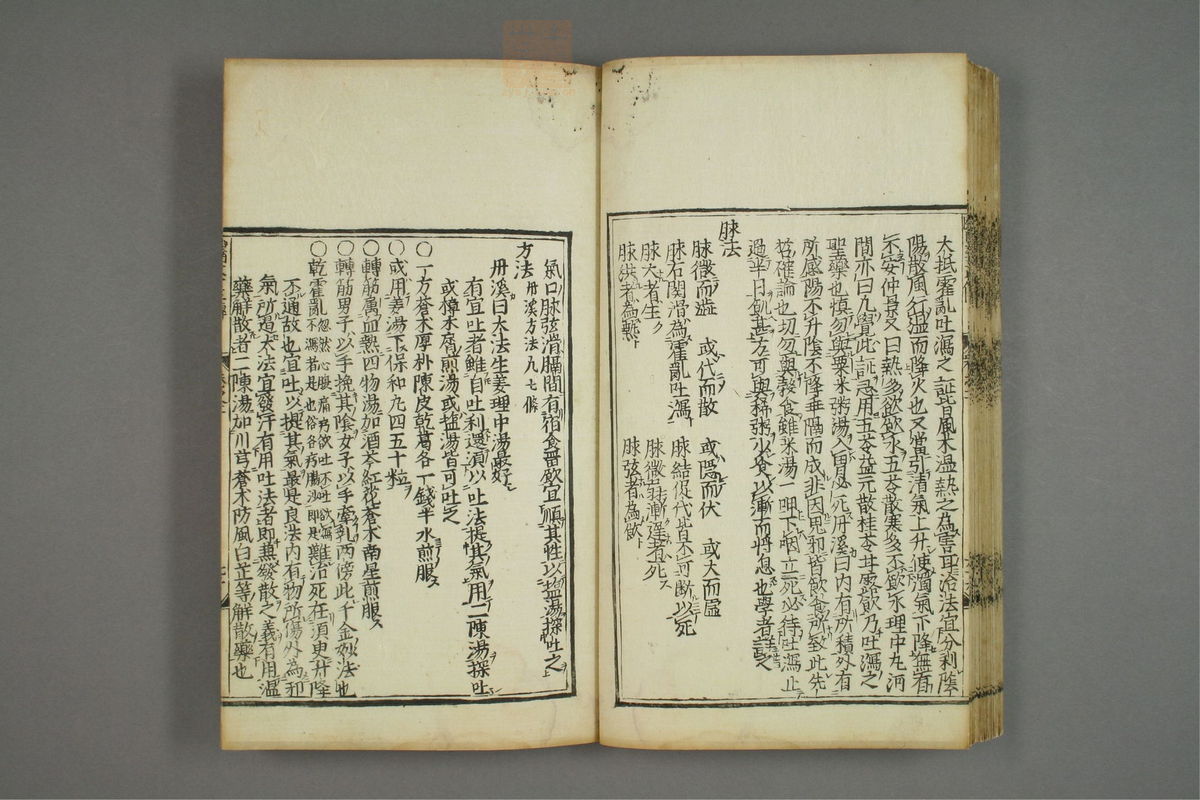 大抵霍亂吐瀉之証皆風木溫熱之為害耳治法宜分利陰
陽散風行湿而降火也又當引清氣上升使濁氣下降無有
不安仲景又曰熱多欲飲水五苓散寒多不飲水理中丸河
間亦曰凡覺此証急用五苓益元散桂苓甘露飲乃吐瀉之
聖藥也慎勿與粟米粥湯入胃必死丹溪曰内有所積外有
所感陽不升陰不降乖隔而成非因鬼邪皆飲食所致此先
哲確論也切勿與穀食雖米湯一呷下咽立死必待吐瀉止
過半日飢甚方可與稀粥少食以漸而將息也學者謹之
脉法
脉微而澁 或代而散 或隱而伏 或大而虛
脉右関滑為霍亂吐瀉 脉結促代皆不可断以死
脉大者生 脉微漸遲者死
脉洪者為熱 脉弦者為飲
氣口脉弦滑膈間有宿食畱飲宜順其性以塩湯探吐之
方法丹溪方法凡七條
丹溪曰大法生姜理中湯最好
有宜吐者雖自吐利還須以吐法提其氣用二陳湯探吐
或樽木屑煎湯或塩湯皆可吐之
○一方蒼木厚朴陳皮乾葛各一錢半水煎服
○或用姜湯下保和丸四五十粒
○轉筋属血熱四物湯加酒芩紅花蒼木南星煎服
○轉筋男子以手挽其陰女子以手牽乳両傍此千金妙法也
○乾霍亂忽然心腹痛㽲欲吐不吐欲瀉不瀉者是也俗名㽲腸沙即是難治死在須臾升降
不通故也宜吐以提其氣最是良法内有物所傷外為邪
氣所遏大法宜發汗有用吐法者即兼發散之義有用溫
藥解散者二陳湯加川芎蒼木防風白芷等解散藥也